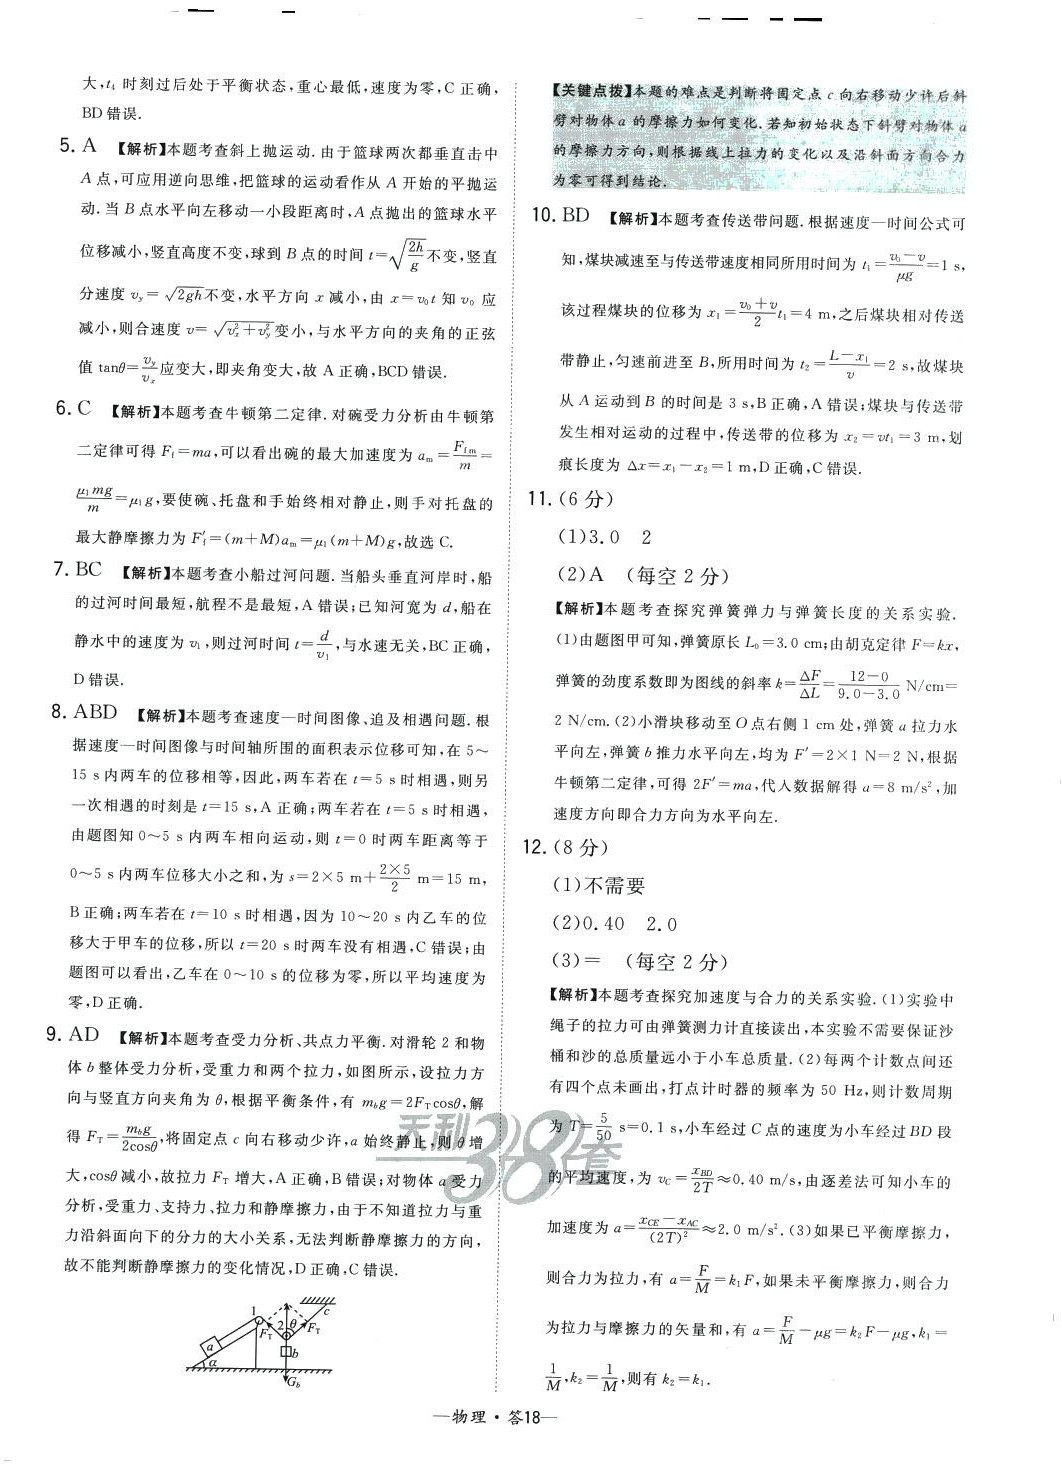 大,t₄ 时刻过后处于平衡状态,重心最低,速度为零,C 正确,
BD 错误.
5. A 【解析】本题考查斜上抛运动.由于篮球两次都垂直击中
A 点,可应用逆向思维,把篮球的运动看作从 A 开始的平抛运
动.当 B 点水平向左移动一小段距离时,A 点抛出的篮球水平
位移减小,竖直高度不变,球到 B 点的时间 t=√(2h/g) 不变,竖直
分速度 v_y=√(2gh) 不变,水平方向 x 减小,由 x=v₀t 知 v₀ 应
减小,则合速度 v=√(v_x²+v_y²) 变小,与水平方向的夹角的正弦
值 tanθ=v_y/v_x 应变大,即夹角变大,故 A 正确,BCD 错误.
6. C 【解析】本题考查牛顿第二定律.对碗受力分析由牛顿第
二定律可得 F_f=ma,可以看出碗的最大加速度为 a_m=F_fm/m=
μ₁mg/m=μ₁g,要使碗、托盘和手始终相对静止,则手对托盘的
最大静摩擦力为 F′_f=(m+M)a_m=μ₁(m+M)g,故选 C.
7. BC 【解析】本题考查小船过河问题.当船头垂直河岸时,船
的过河时间最短,航程不是最短,A 错误;已知河宽为 d,船在
静水中的速度为 v₁,则过河时间 t=d/v₁,与水速无关,BC 正确,
D 错误.
8. ABD 【解析】本题考查速度—时间图像、追及相遇问题.根
据速度—时间图像与时间轴所围的面积表示位移可知,在 5~
15 s 内两车的位移相等,因此,两车若在 t=5 s 时相遇,则另
一次相遇的时刻是 t=15 s,A 正确;两车若在 t=5 s 时相遇,
由题图知 0~5 s 内两车相向运动,则 t=0 时两车距离等于
0~5 s 内两车位移大小之和,为 s=2×5 m+(2×5)/2 m=15 m,
B 正确;两车若在 t=10 s 时相遇,因为 10~20 s 内乙车的位
移大于甲车的位移,所以 t=20 s 时两车没有相遇,C 错误;由
题图可以看出,乙车在 0~10 s 的位移为零,所以平均速度为
零,D 正确.
9. AD 【解析】本题考查受力分析、共点力平衡.对滑轮 2 和物
体 b 整体受力分析,受重力和两个拉力,如图所示,设拉力方
向与竖直方向夹角为 θ,根据平衡条件,有 m_b g=2F_T cosθ,解
得 F_T=m_b g/(2cosθ),将固定点 c 向右移动少许,a 始终静止,则 θ 增
大,cosθ 减小,故拉力 F_T 增大,A 正确,B 错误;对物体 a 受力
分析,受重力、支持力、拉力和静摩擦力,由于不知道拉力与重
力沿斜面向下的分力的大小关系,无法判断静摩擦力的方向,
故不能判断静摩擦力的变化情况,D 正确,C 错误.
1 c
F_T 2 θ F_T
a b
α
G_b
【关键点拨】本题的难点是判断将固定点 c 向右移动少许后斜
劈对物体 a 的摩擦力如何变化.若知初始状态下斜劈对物体 a
的摩擦力方向,则根据线上拉力的变化以及沿斜面方向合力
为零可得到结论.
10. BD 【解析】本题考查传送带问题.根据速度—时间公式可
知,煤块减速至与传送带速度相同所用时间为 t₁=(v₀−v)/(μg)=1 s,
该过程煤块的位移为 x₁=(v₀+v)/2 t₁=4 m,之后煤块相对传送
带静止,匀速前进至 B,所用时间为 t₂=(L−x₁)/v=2 s,故煤块
从 A 运动到 B 的时间是 3 s,B 正确,A 错误;煤块与传送带
发生相对运动的过程中,传送带的位移为 x₂=vt₁=3 m,划
痕长度为 Δx=x₁−x₂=1 m,D 正确,C 错误.
11. (6 分)
(1)3.0 2
(2)A (每空 2 分)
【解析】本题考查探究弹簧弹力与弹簧长度的关系实验.
(1)由题图甲可知,弹簧原长 L₀=3.0 cm;由胡克定律 F=kx,
弹簧的劲度系数即为图线的斜率 k=ΔF/ΔL=(12−0)/(9.0−3.0) N/cm=
2 N/cm.(2)小滑块移动至 O 点右侧 1 cm 处,弹簧 a 拉力水
平向左,弹簧 b 推力水平向左,均为 F′=2×1 N=2 N,根据
牛顿第二定律,可得 2F′=ma,代入数据解得 a=8 m/s²,加
速度方向即合力方向为水平向左.
12. (8 分)
(1)不需要
(2)0.40 2.0
(3)= (每空 2 分)
【解析】本题考查探究加速度与合力的关系实验.(1)实验中
绳子的拉力可由弹簧测力计直接读出,本实验不需要保证沙
桶和沙的总质量远小于小车总质量.(2)每两个计数点间还
有四个点未画出,打点计时器的频率为 50 Hz,则计数周期
为 T=5/50 s=0.1 s,小车经过 C 点的速度为小车经过 BD 段
的平均速度,为 v_C=x_BD/(2T)≈0.40 m/s,由逐差法可知小车的
加速度为 a=(x_CE−x_AC)/(2T)²≈2.0 m/s².(3)如果已平衡摩擦力,
则合力为拉力,有 a=F/M=k₁F,如果未平衡摩擦力,则合力
为拉力与摩擦力的矢量和,有 a=F/M−μg=k₂F−μg,k₁=
1/M,k₂=1/M,则有 k₂=k₁.
天利38套
—物理·答18—